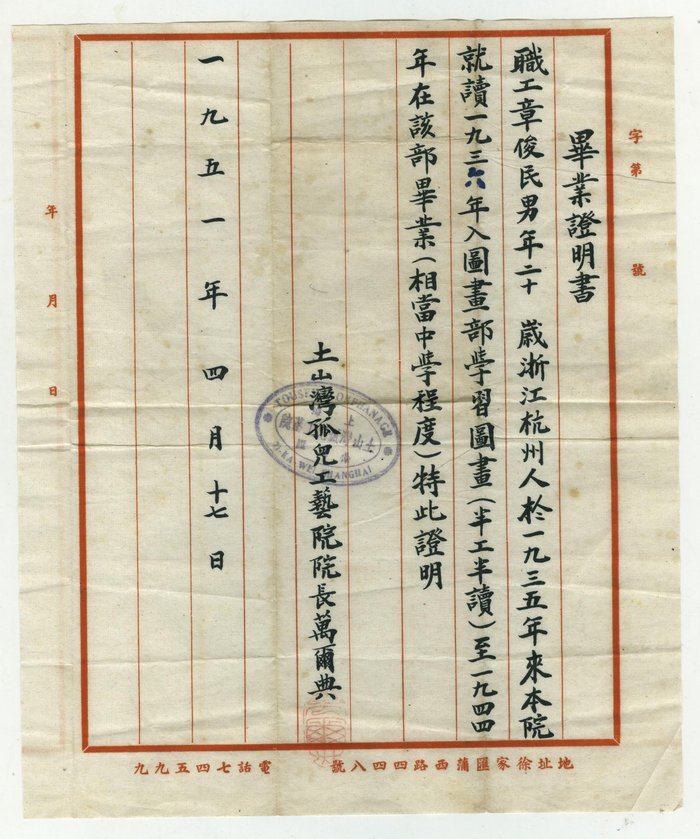 字第 號
畢業證明書
職工章俊民男年二十 歲浙江杭州人於一九三五年來本院
就讀一九三六年入圖畫部學習圖畫(半工半讀)至一九四四
年在該部畢業(相當中學程度)特此證明
土山灣孤兒工藝院院長萬爾典
一九五一年四月十七日
年 月 日
TOUSEWE ORPHANAGE
ZI-KA-WEI SHANGHAI
地址徐家匯蒲西路四四八號 電話七四五九九